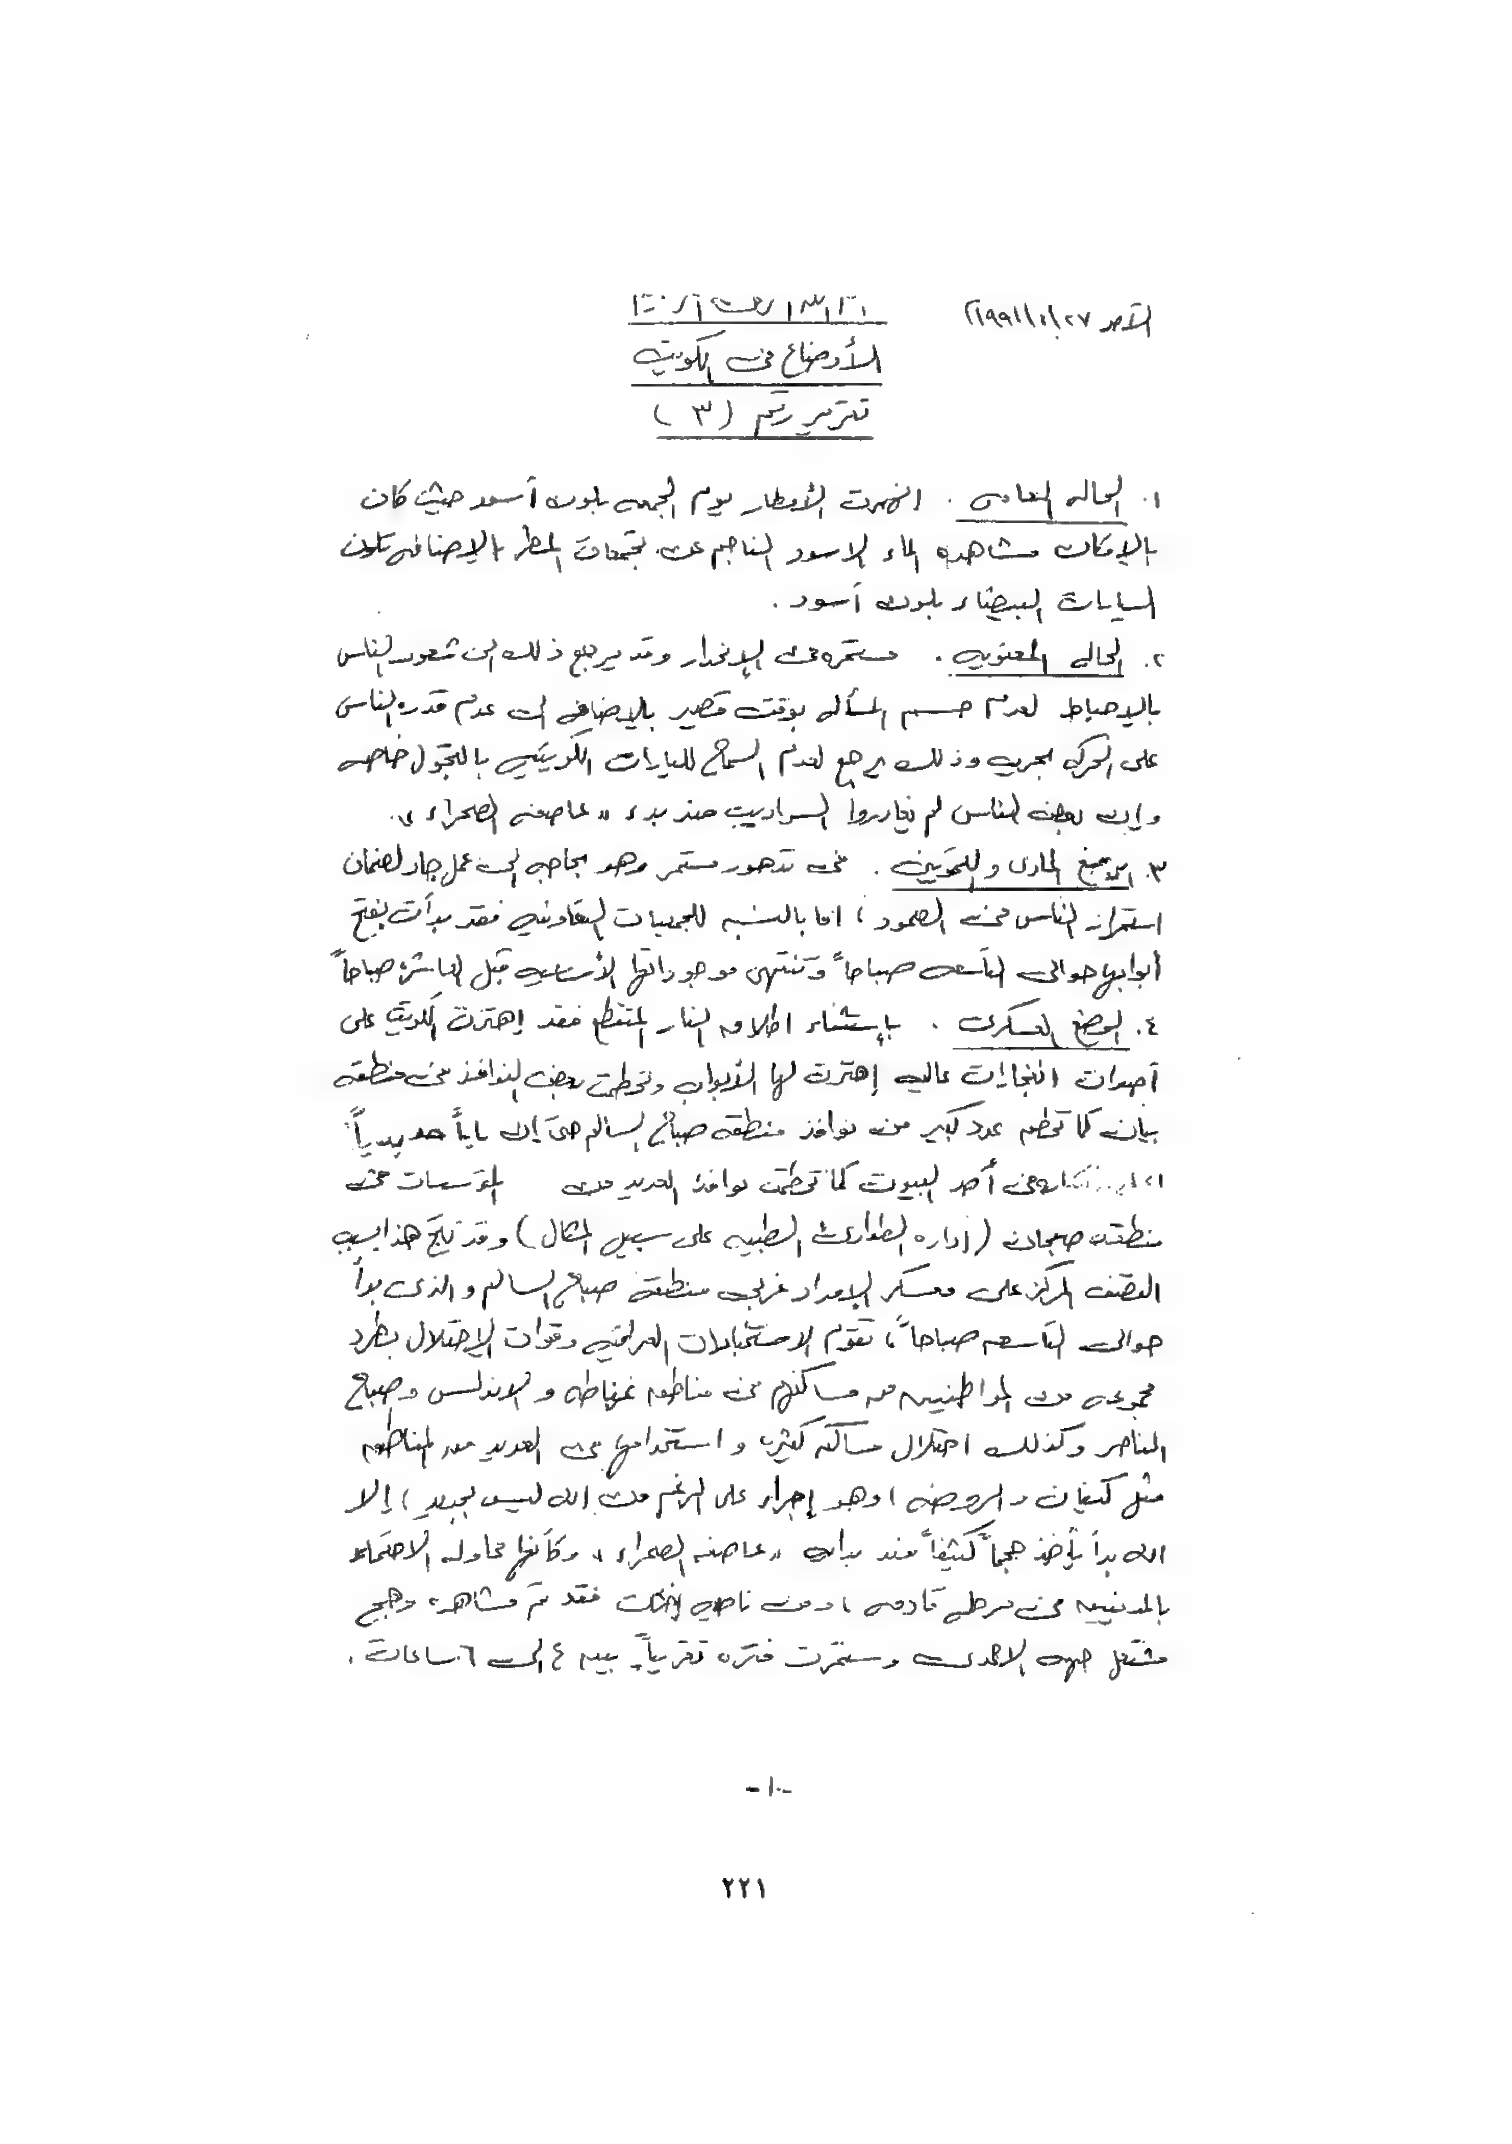 الأحد ١٩٩١/١/٢٧م
بسم الله الرحمن الرحيم
الأوضاع في الكويت
تقرير رقم (٣)
١. الحاله العامه . انهمرت الأمطار يوم الجمعه بلون أسود حيث كان
بالإمكان مشاهده الماء الاسود الناجم عن تجمعات المطر بالإضافه تلون
السيارات البيضاء بلون أسود .
٢. الحاله المعنويه . مستمره في الإنحدار وقد يرجع ذلك الى شعور الناس
بالإحباط لعدم حسم المسأله بوقت قصير بالإضافه الى عدم قدره الناس
على الحركه بحريه وذلك يرجع لعدم السماح للسيارات الكويتيه بالتجول خاصه
وإن بعض الناس لم يغادروا السراديب منذ بدء « عاصفه الصحراء » .
٣. الوضع المادى والتموين . في تدهور مستمر وهو بحاجه الى عمل جاد لضمان
استمرار الناس في الصمود ، اما بالنسبه للجمعيات التعاونيه فقد بدأت بفتح
أبوابها حوالى التاسعه صباحاً وتنتهى موجوداتها الأساسيه قبل العاشرة صباحاً
٤. الوضع العسكرى . بإستثناء اطلاق النار المتقطع فقد إهتزت الكويت على
أصوات انفجارات عاليه إهتزت لها الأبواب وتحطمت بعض النوافذ في منطقه
بيان كما تحطم عدد كبير من نوافذ منطقه صباح السالم حتى إن باباً حديدياً
في أحد البيوت كما تحطمت نوافذ العديد من المؤسسات في
منطقه صبحان (إداره الطوارئ الطبيه على سبيل المثال) وقد نتج هذا بسبب
القصف المركز على معسكر الإمداد غربي منطقه صباح السالم والذى بدأ
حوالى التاسعه صباحاً ، تقوم الاستخبارات العراقيه وقوات الإحتلال بطرد
مجموعه من المواطنين من مساكنهم في مناطق غرناطه والاندلس وصباح
الناصر وكذلك احتلال مساكن كثيره واستخدامها في العديد من المناطق
مثل كيفان والروضه ، وهو إجراء على الرغم من انه ليس بجديد ، إلا
انه بدأ يأخذ حجماً كثيفاً منذ بدايه « عاصفه الصحراء » وكأنها محاوله الاحتماء
بالمدنيين في مرحله قادمه ، ومن ناحيه فقد تم مشاهده وهج
مشتعل جهه الاحمدى وستمرت فتره تقريباً بين ٤ الى ٦ ساعات .
-١٠-
٢٢١